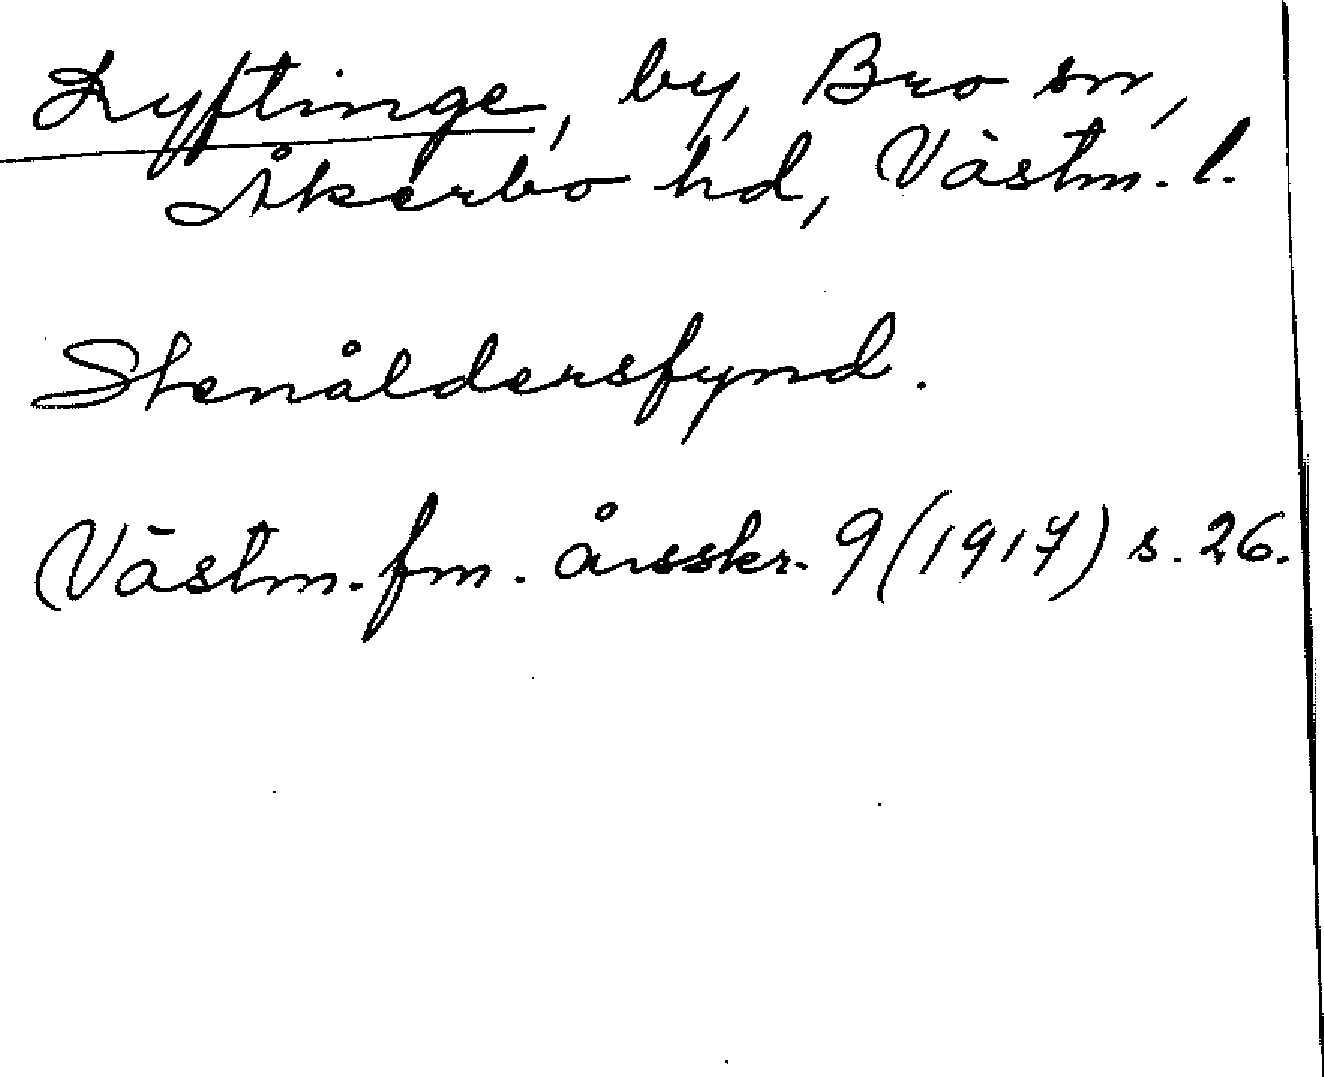 Lyftinge, by, Bro sn,
Åkerbo hd, Västm. l.
Stenåldersfynd.
Västm. fm. årsskr. 9 (1917) s. 26.